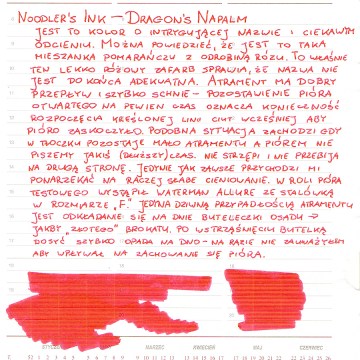 NOODLER'S INK – DRAGON'S NAPALM
JEST TO KOLOR O INTRYGUJĄCEJ NAZWIE I CIEKAWYM
ODCIENIU. MOŻNA POWIEDZIEĆ, ŻE JEST TO TAKA
MIESZANKA POMARAŃCZU Z ODROBINĄ RÓŻU. TO WŁAŚNIE
TEN LEKKO RÓŻOWY ZAFARB SPRAWIA, ŻE NAZWA NIE
JEST DO KOŃCA ADEKWATNA. ATRAMENT MA DOBRY
PRZEPŁYW I SZYBKO SCHNIE – POZOSTAWIENIE PIÓRA
OTWARTEGO NA PEWIEN CZAS OZNACZA KONIECZNOŚĆ
ROZPOCZĘCIA KREŚLONEJ LINII CIUT WCZEŚNIEJ ABY
PIÓRO ZASKOCZYŁO. PODOBNA SYTUACJA ZACHODZI GDY
W TŁOCZKU POZOSTAJE MAŁO ATRAMENTU A PIÓREM NIE
PISZEMY JAKIŚ (DŁUŻSZY) CZAS. NIE STRZĘPI I NIE PRZEBIJA
NA DRUGĄ STRONĘ. JEDYNIE JAK ZAWSZE PRZYCHODZI MI
PONARZEKAĆ NA RACZEJ SŁABE CIENIOWANIE. W ROLI PIÓRA
TESTOWEGO WYSTĄPIŁ WATERMAN ALLURE ZE STALÓWKĄ
W ROZMIARZE „F." JEDYNĄ DZIWNĄ PRZYPADŁOŚCIĄ ATRAMENTU
JEST ODKŁADANIE SIĘ NA DNIE BUTELECZKI OSADU →
JAKBY „ZŁOTEGO" BROKATU. PO WSTRZĄŚNIĘCIU BUTELKĄ
DOSYĆ SZYBKO OPADA NA DNO – NA RAZIE NIE ZAUWAŻYŁEM
ABY WPŁYWAŁ NA ZACHOWANIE SIĘ PIÓRA.
STYCZEŃ MARZEC KWIECIEŃ MAJ CZERWIEC